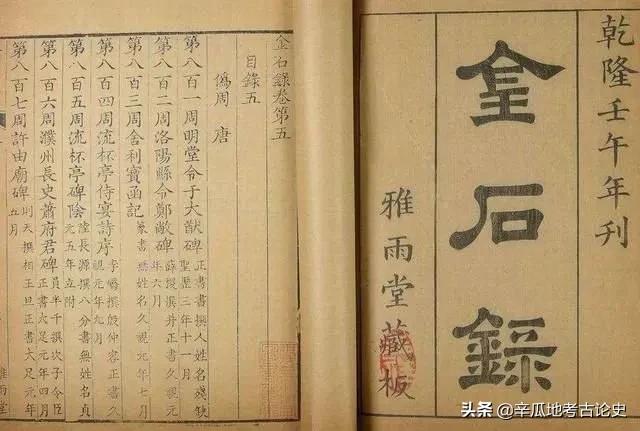 乾隆壬午年刊
金石錄
雅雨堂藏板
金石錄卷第五
目錄五
偽周 唐
第八百一周明堂令于大猷碑 正書書撰人姓名殘缺
聖歷三年十一月
第八百二周洛陽縣令鄭敞碑 薛稷撰并正書久視元
年六月
第八百三周舍利寶函記 篆書無姓名久視元年七月
第八百四周流杯亭侍宴詩序 李嶠撰殷仲容正書久
視元年九月
第八百五周流杯亭碑陰 陸長源撰八分書無姓名貞
元五年立附
第八百六周濮州長史蕭府君碑 員半千撰次子令臣
正書大足元年四月
第八百七周許由廟碑 則天撰相王旦正書大足元年
五月
雅雨堂
头条 @辛瓜地考古论史